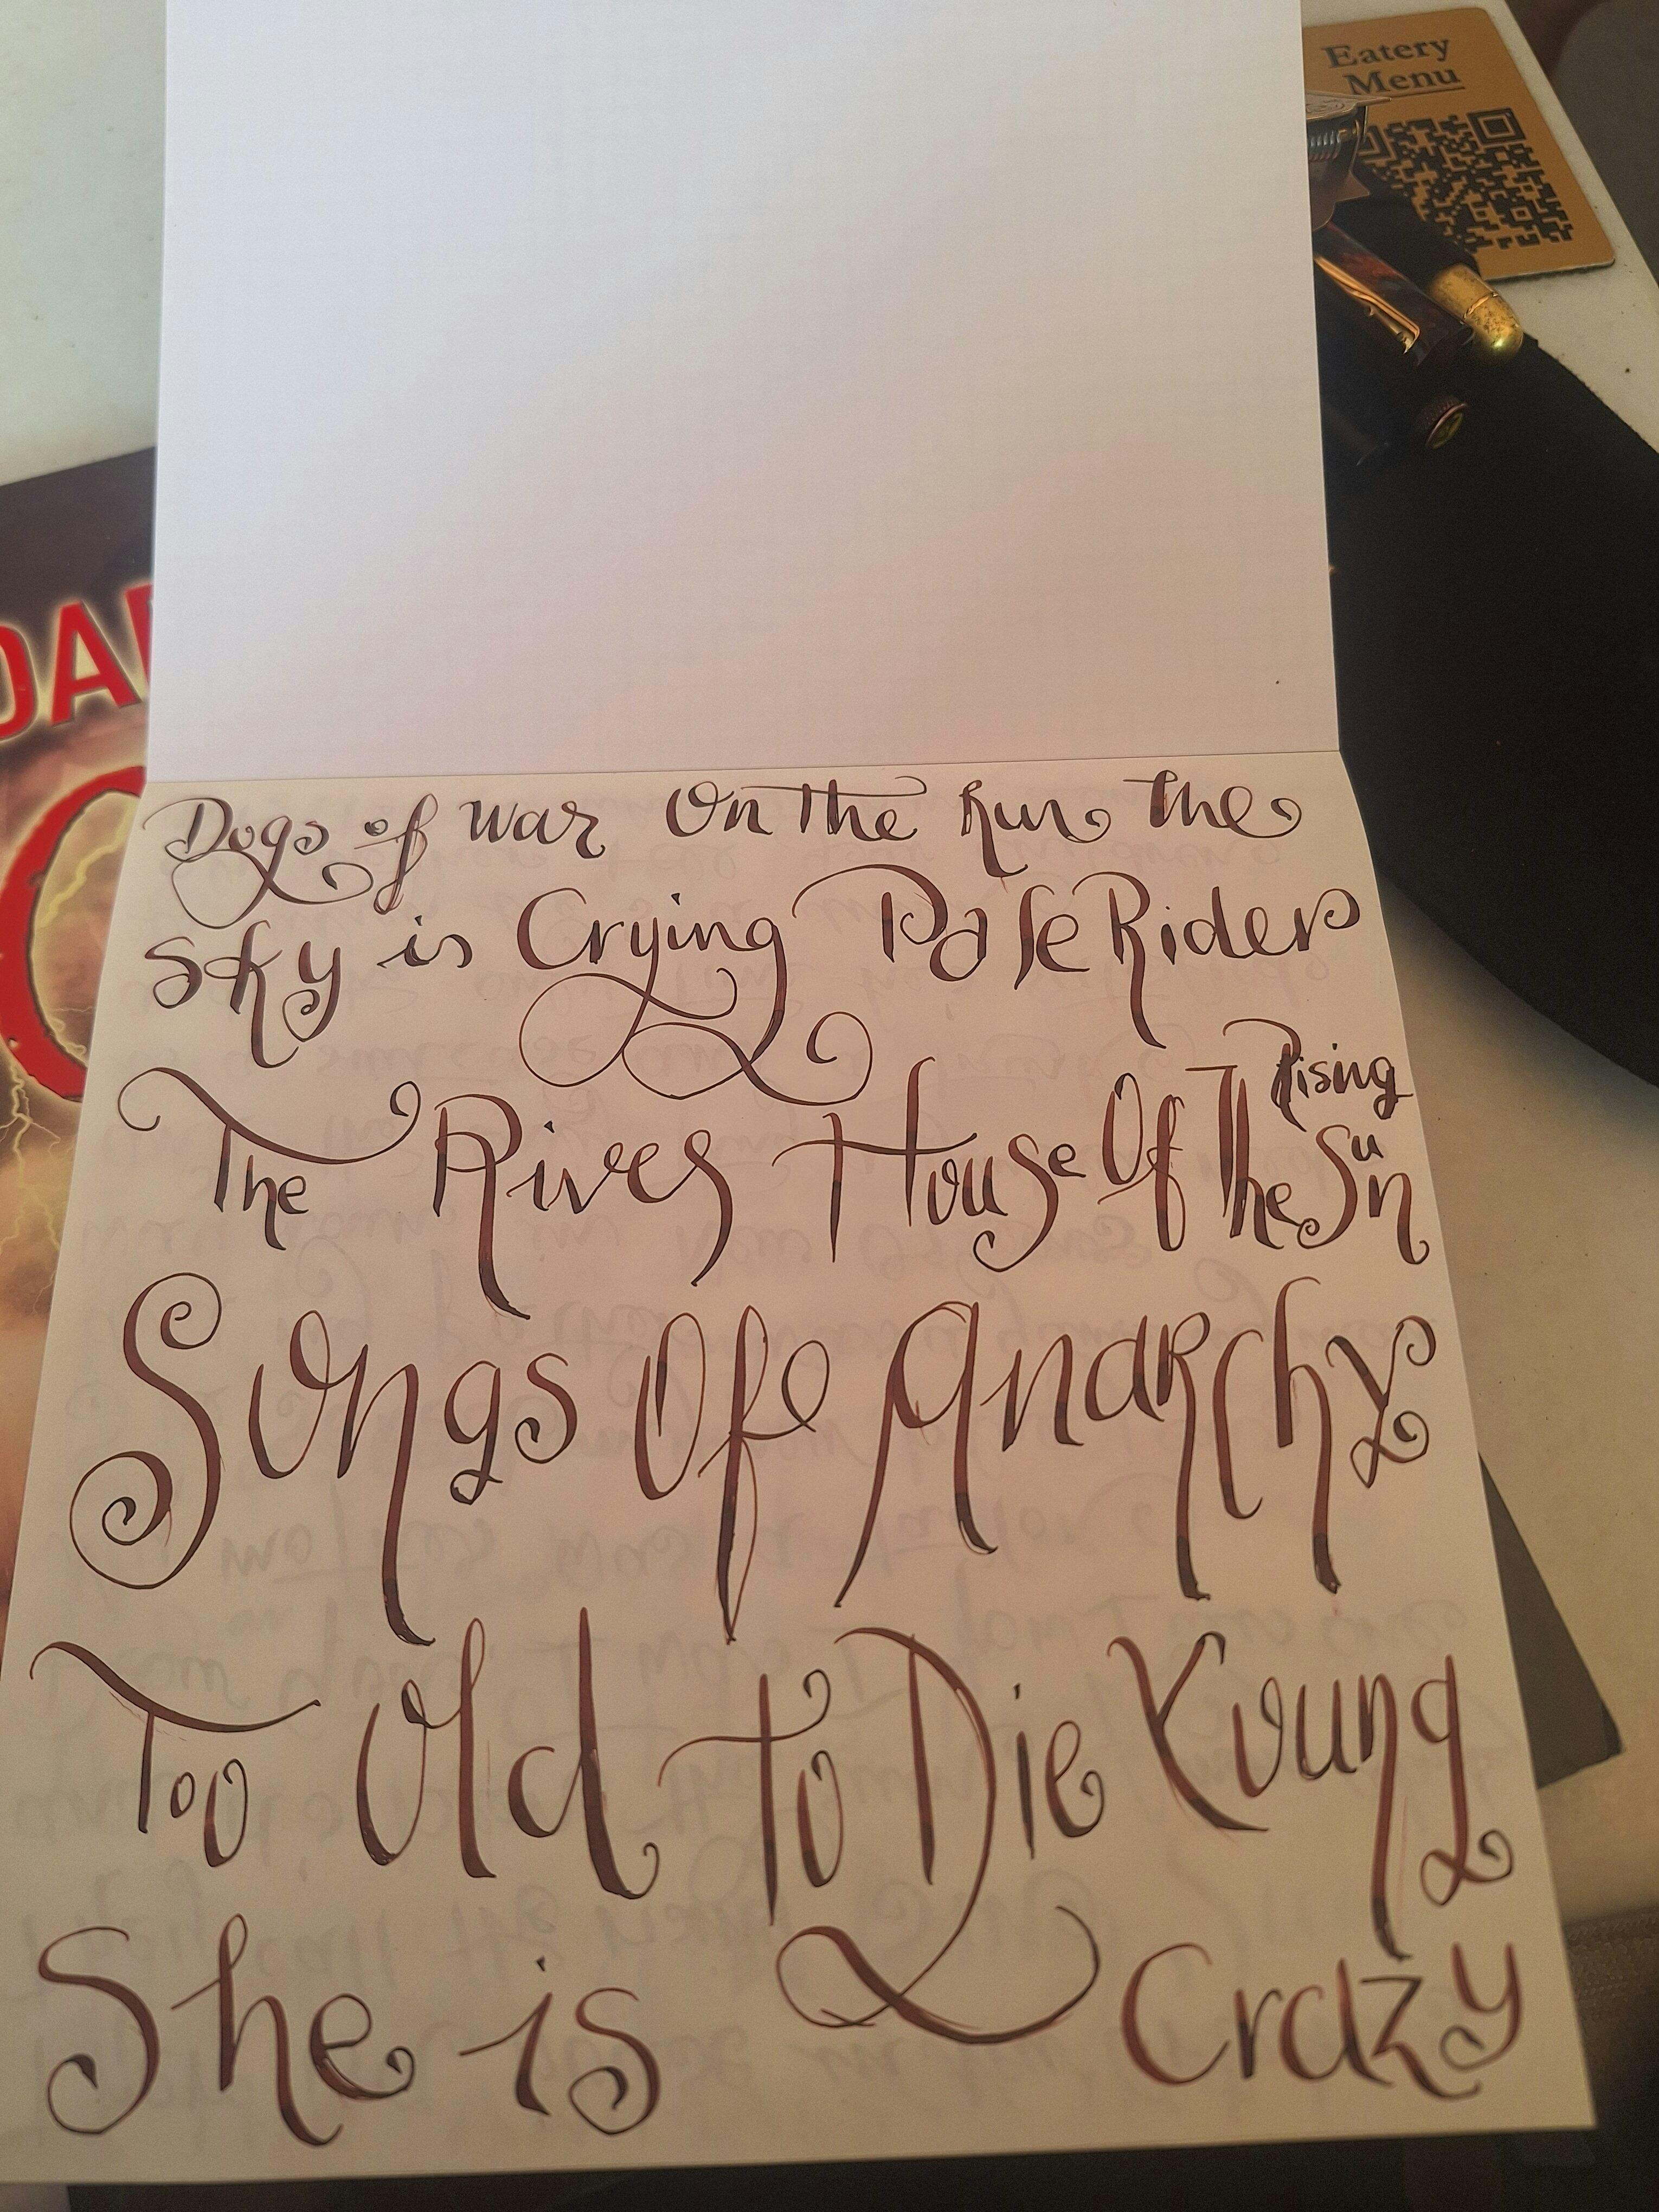 Eatery
Menu
DAR
Dogs of war On The Run The
Sky is Crying Pale Rider
The River House Of The Rising Sun
Songs Of Anarchy
Too Old To Die Young
She is Crazy